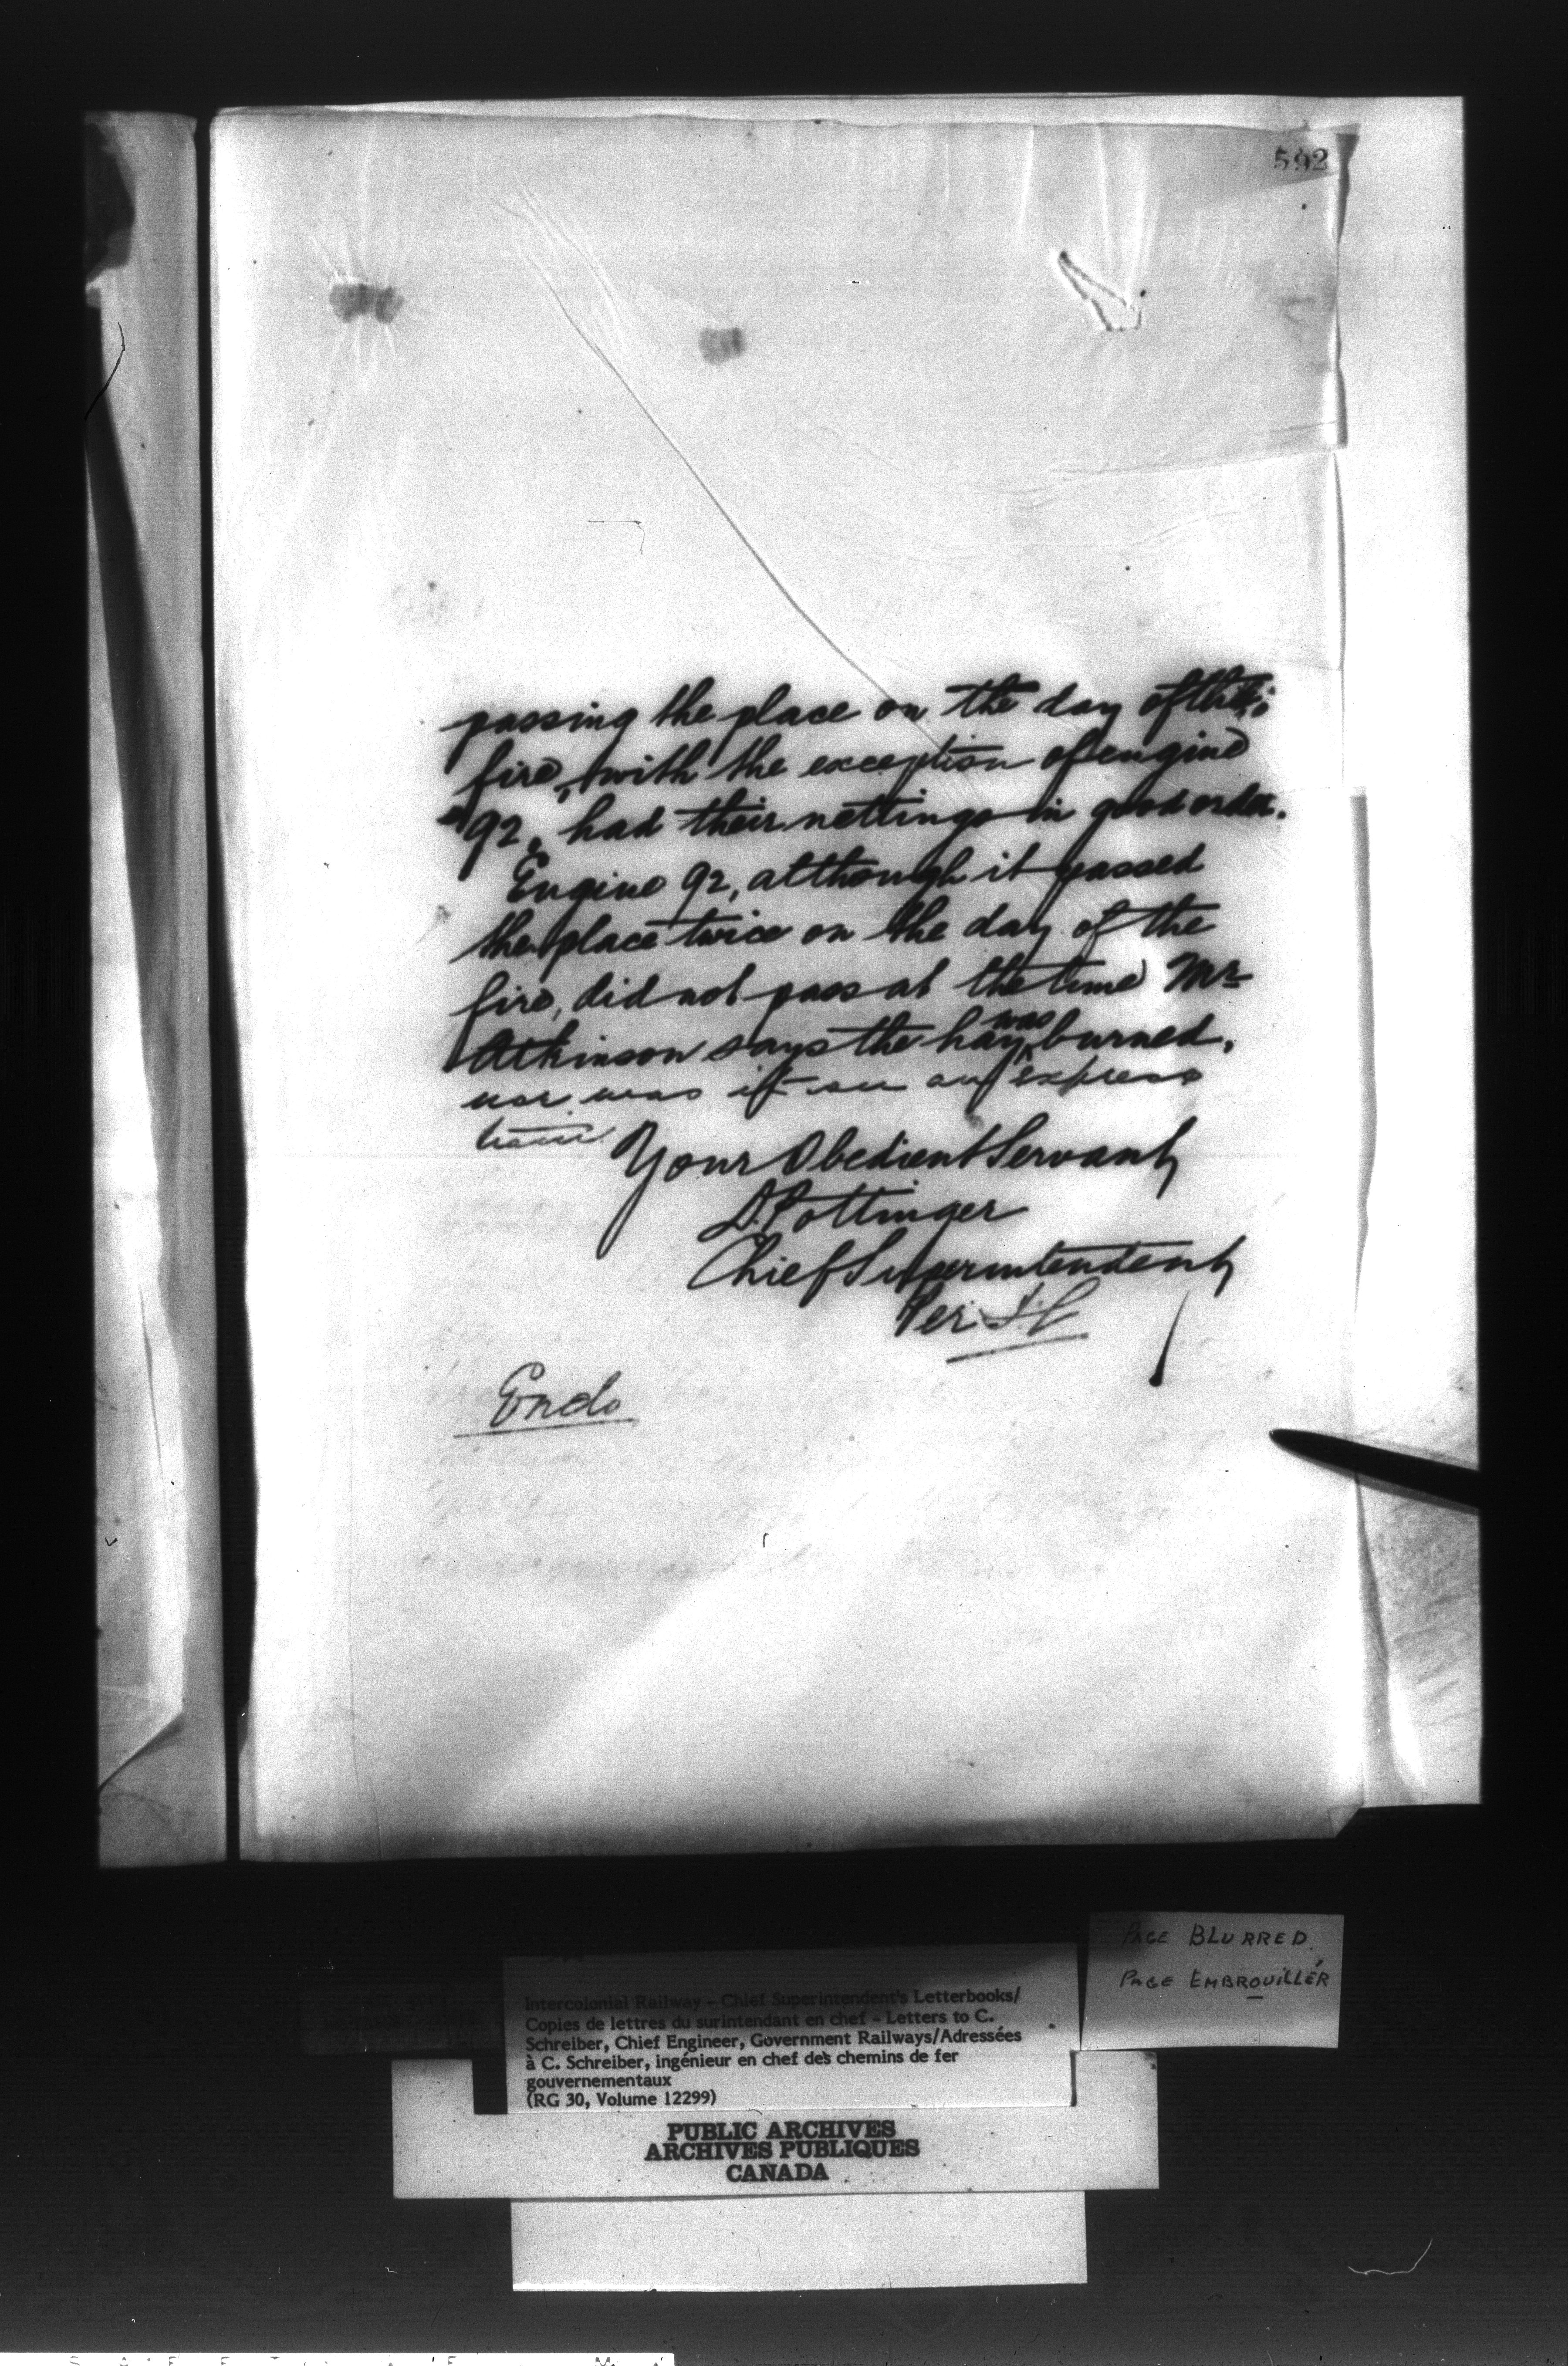 592
passing the place on the day of the
fire, with the exception of engine
92, had their nettings in good order.
Engine 92, although it passed
the place twice on the day of the
fire, did not pass at the time Mr
Atkinson says the hay was burned,
nor was it on an express
train.
Your Obedient Servant,
D. Pottinger
Chief Superintendent,
Per
Endo
PAGE BLURRED
PAGE EMBROUILLÉR
Intercolonial Railway - Chief Superintendent's Letterbooks/
Copies de lettres du surintendant en chef - Letters to C.
Schreiber, Chief Engineer, Government Railways/Adressées
à C. Schreiber, ingénieur en chef des chemins de fer
gouvernementaux
(RG 30, Volume 12299)
PUBLIC ARCHIVES
ARCHIVES PUBLIQUES
CANADA